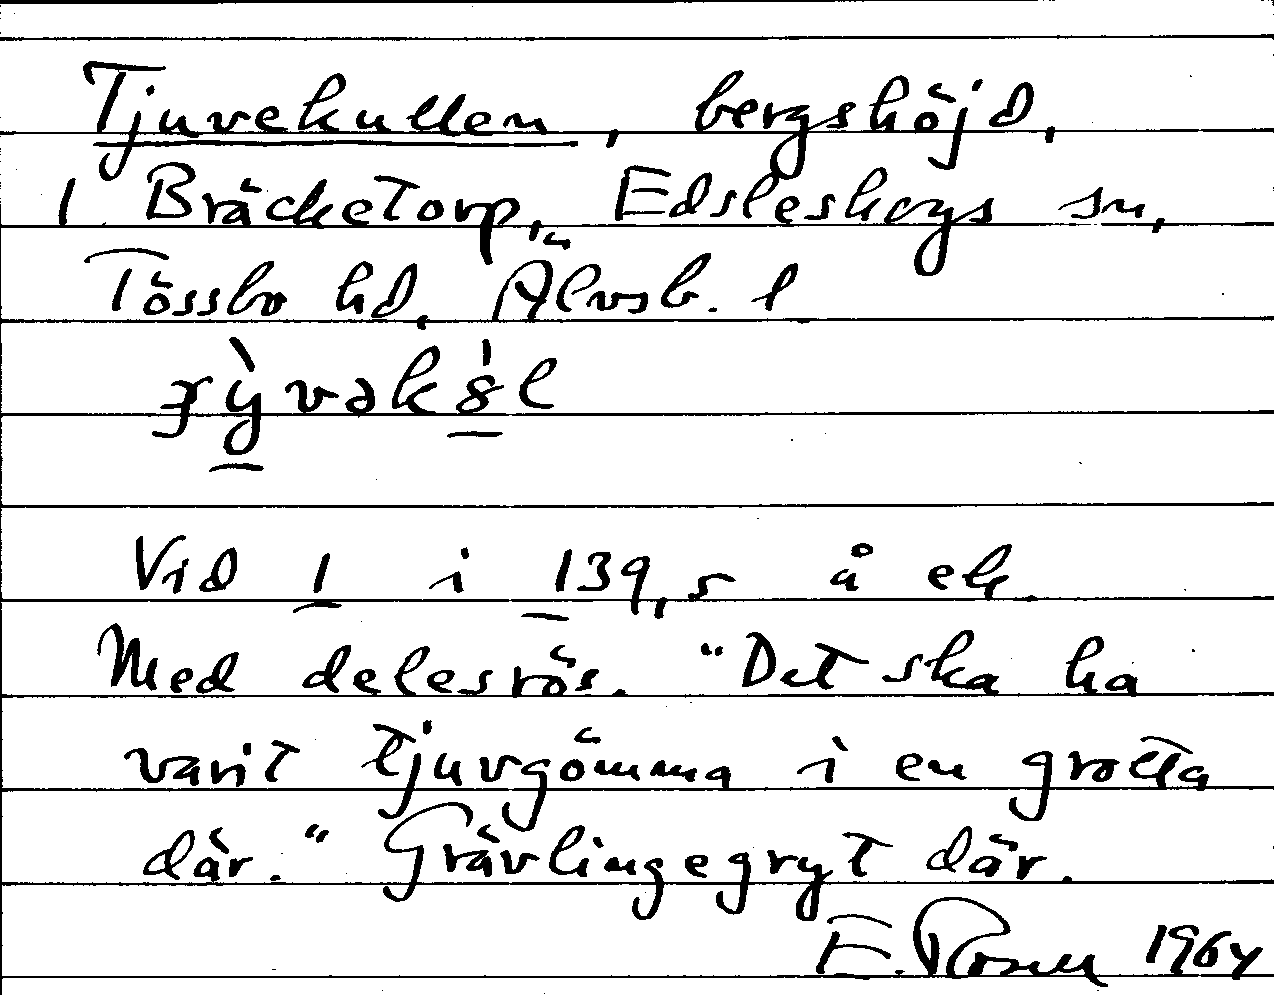 Tjuvekullen, bergshöjd,
1 Bräcketorp, Edsleskogs sn,
Tössbo hd, Älvsb. l

Vid 1 i 139,5 å ek.
Med delesrös. "Det ska ha
varit tjuvgömma i en grotta
där." Grävlingegryt där.
E. Rosell 1964